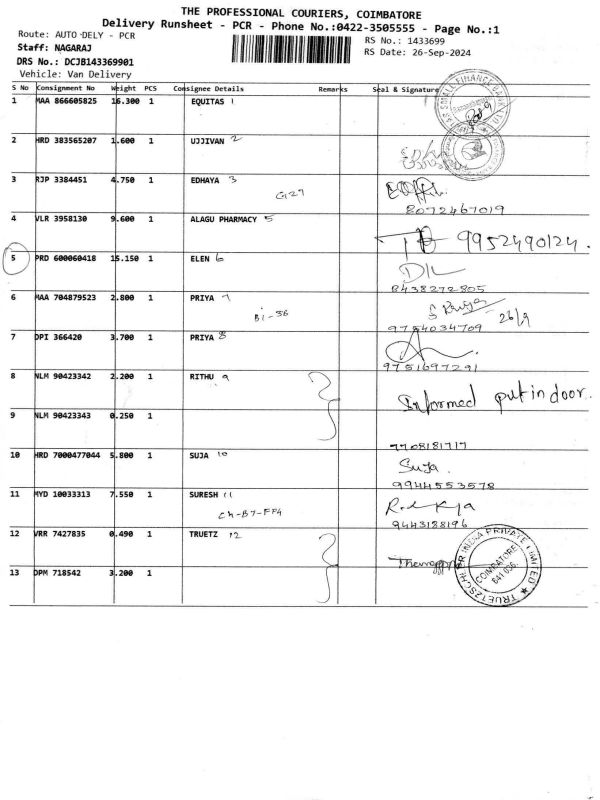 THE PROFESSIONAL COURIERS, COIMBATORE
Delivery Runsheet - PCR - Phone No.:0422-3505555 - Page No.:1
Route: AUTO DELY - PCR
RS No.: 1433699
Staff: NAGARAJ
RS Date: 26-Sep-2024
DRS No.: DCJB143369901
Vehicle: Van Delivery
S No Consignment No Weight PCS Consignee Details Remarks Seal & Signature
1 MAA 866605825 16.300 1 EQUITAS 1
2 HRD 383565207 1.600 1 UJJIVAN 2
3 RJP 3384451 4.750 1 EDHAYA 3
G27
8072467019
4 VLR 3958130 9.600 1 ALAGU PHARMACY 5
9952490124.
5 PRD 600060418 15.150 1 ELEN 6
8438272805
6 MAA 704879523 2.800 1 PRIYA 7
Bi-36
S Priya 26/9
9754034709
7 DPI 366420 3.700 1 PRIYA 8
9751697291
8 NLM 90423342 2.200 1 RITHU 9
Informed put in door.
9 NLM 90423343 0.250 1
7708181717
10 HRD 7000477044 5.800 1 SUJA 10
Suja.
9944553578
11 MYD 10033313 7.550 1 SURESH 11
CH-B7-FF4
9443188196
12 VRR 7427835 0.490 1 TRUETZ 12
13 DPM 718542 3.200 1
TRUETZSCHLER INDIA PRIVATE LIMITED
COIMBATORE
641 036.